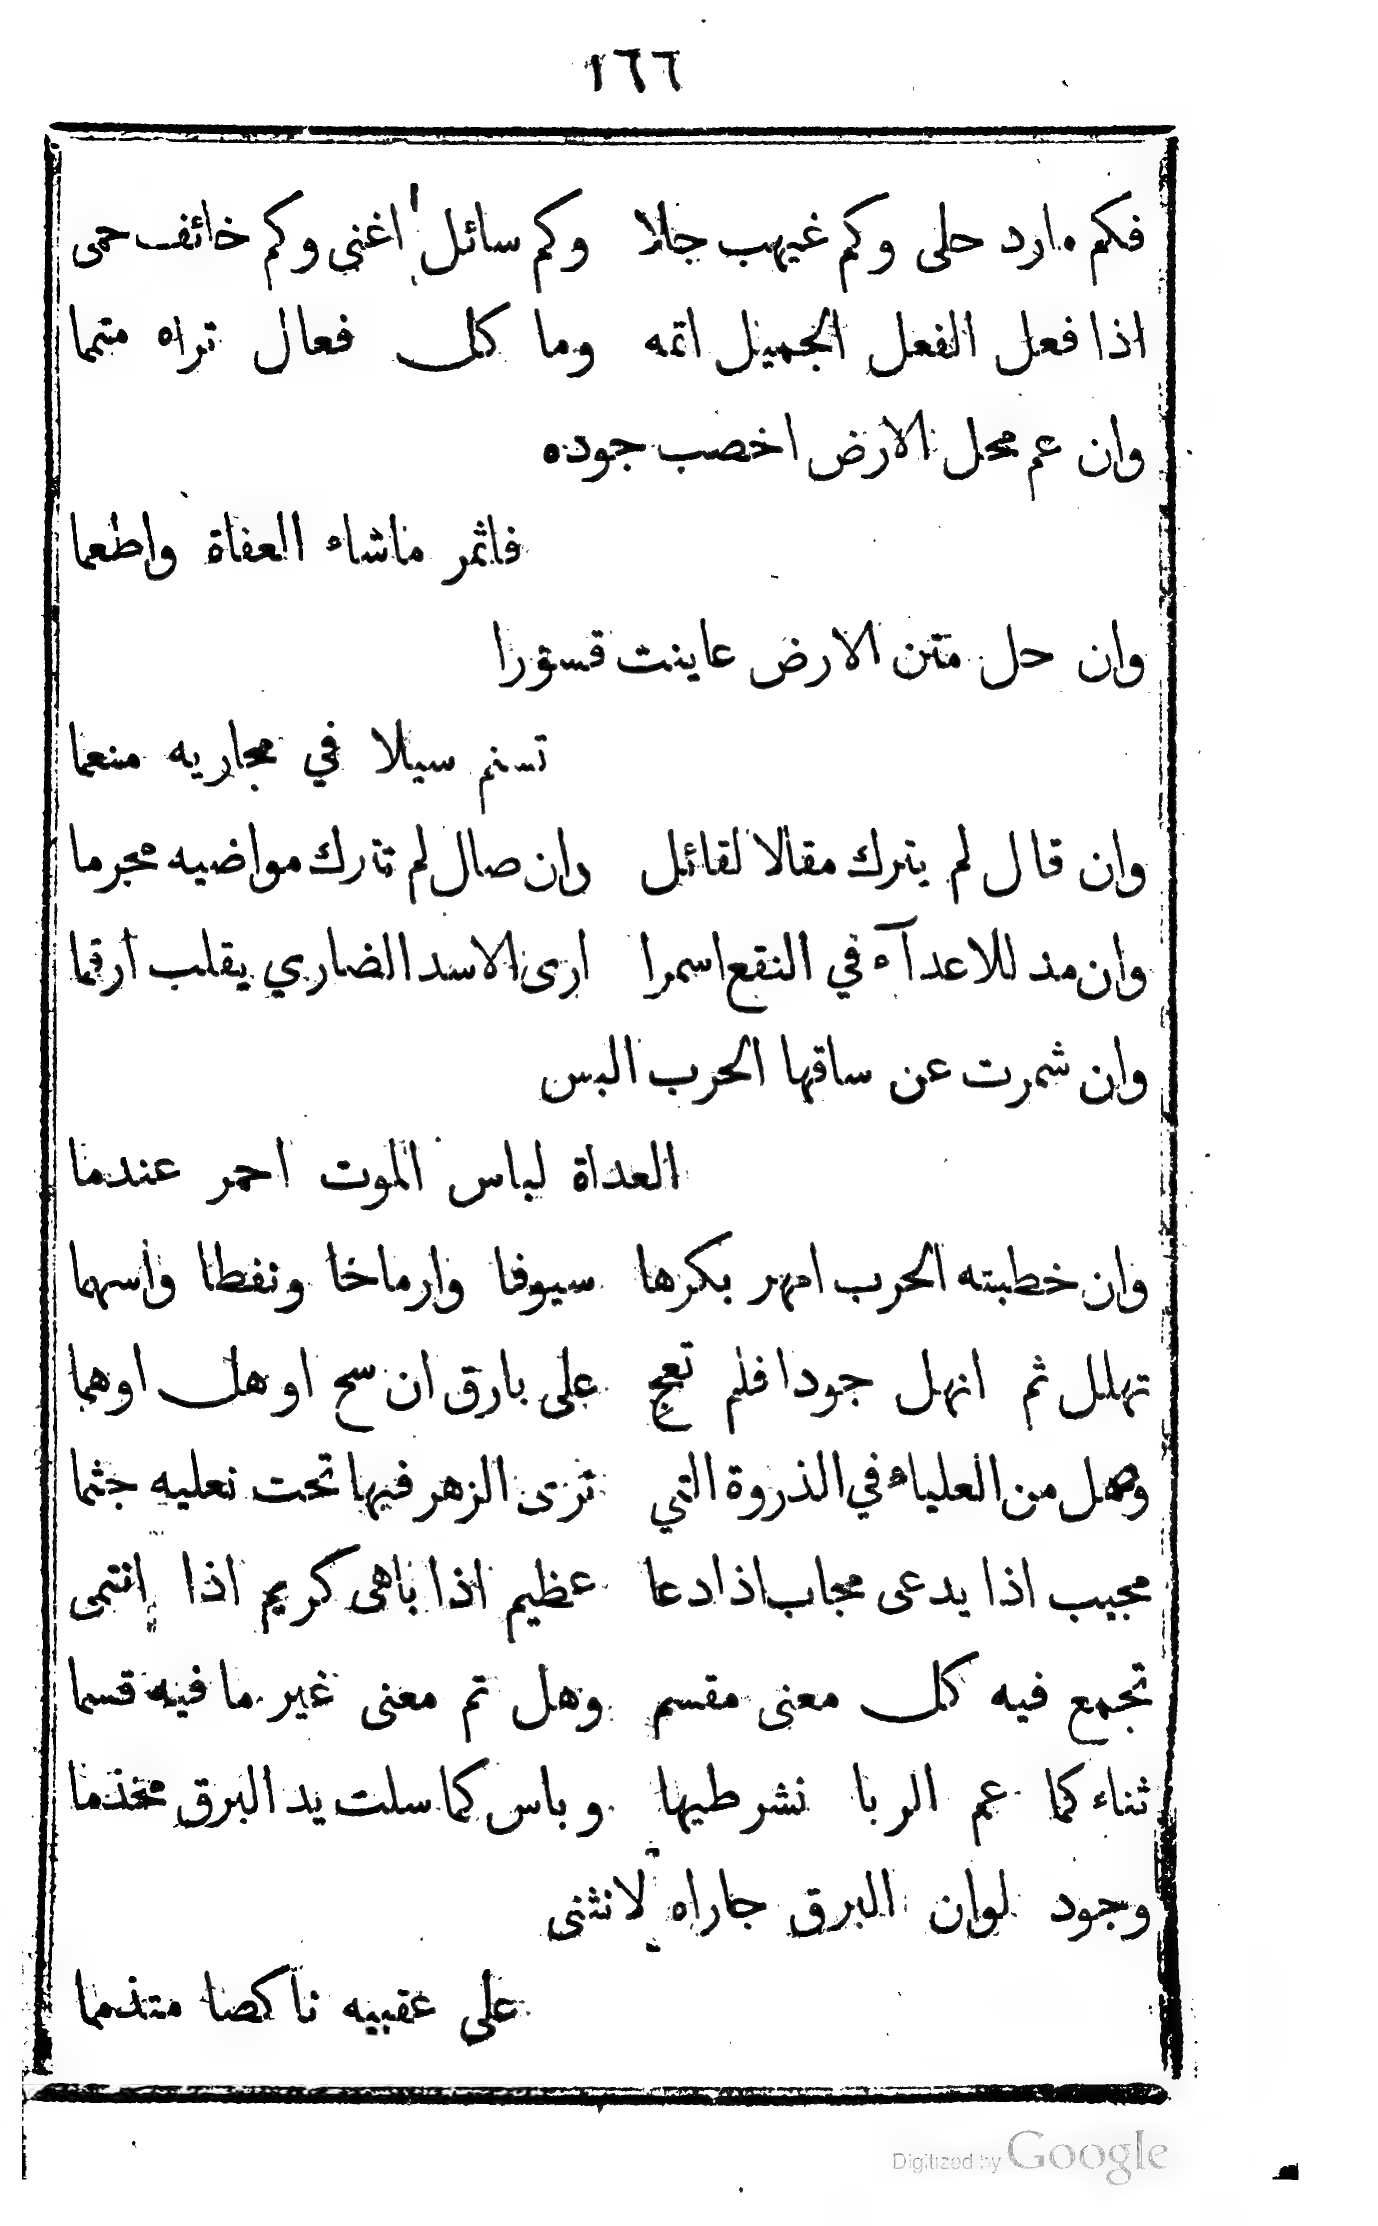 ١٦٦
فكم مارد حلى وكم غيهب جلا وكم سائل اغنى وكم خائف حمى
اذا فعل الفعل الجميل اتمه وما كل فعال تراه متمما
وان عم محل الارض اخصب جوده
فاثمر ماشاء العفاة واطعما
وان حل متن الارض عاينت قسورا
تسنم سيلا في مجاريه منعما
وان قال لم يترك مقالا لقائل وان صال لم تترك مواضيه مجرما
وان مد للاعدآء في النقع اسمرا ارى الاسد الضاري يقلب ارقما
وان شمرت عن ساقها الحرب البس
العداة لباس الموت احمر عندما
وان خطبته الحرب امهر بكرها سيوفا وارماحا ونفطا واسهما
تهلل ثم انهل جودا فلم تعج على بارق ان سح او هل اوهما
وحل من العلياء في الذروة التي ترى الزهر فيها تحت نعليه جثما
مجيب اذا يدعى مجاب اذا دعا عظيم اذا باهى كريم اذا انتمى
تجمع فيه كل معنى مقسم وهل تم معنى غير ما فيه قسما
ثناء كما عم الربا نشر طيها وباس كما سلت يد البرق مخذما
وجود لوان البرق جاراه لانثنى
على عقبيه ناكصا متذمما
Digitized by Google